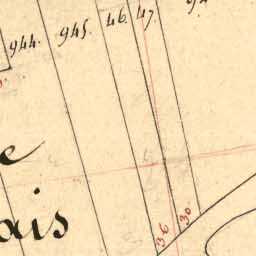 944. 945. 46. 47.
e
ais
36 30.